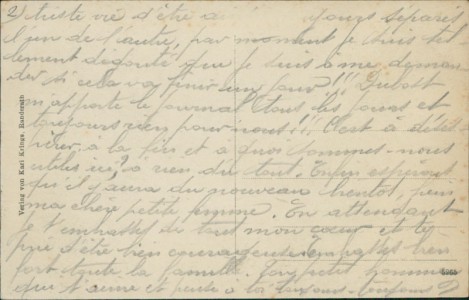 2) triste vie d'être a yours séparés
l'un de l'autre, par moment je suis tel
lement dégouté que je suis à me deman
der si cela va finir un jour!!! Diebolt
m'apporte le journal tous les jours et
toujours rien pour nous!!! C'est à déses
pérer à la fin et à quoi sommes-nous
utiles ici? à rien du tout. Enfin espérons
qu'il y aura du nouveau bientôt, puis
ma chère petite femme. En attendant
je t'embrasse de tout mon cœur et te
prie d'être bien courageuse embrasse bien
fort toute la famille. Ton petit homme
qui t'aime et pense à toi toujours-toujours
Verlag von Karl Krings, Randerath